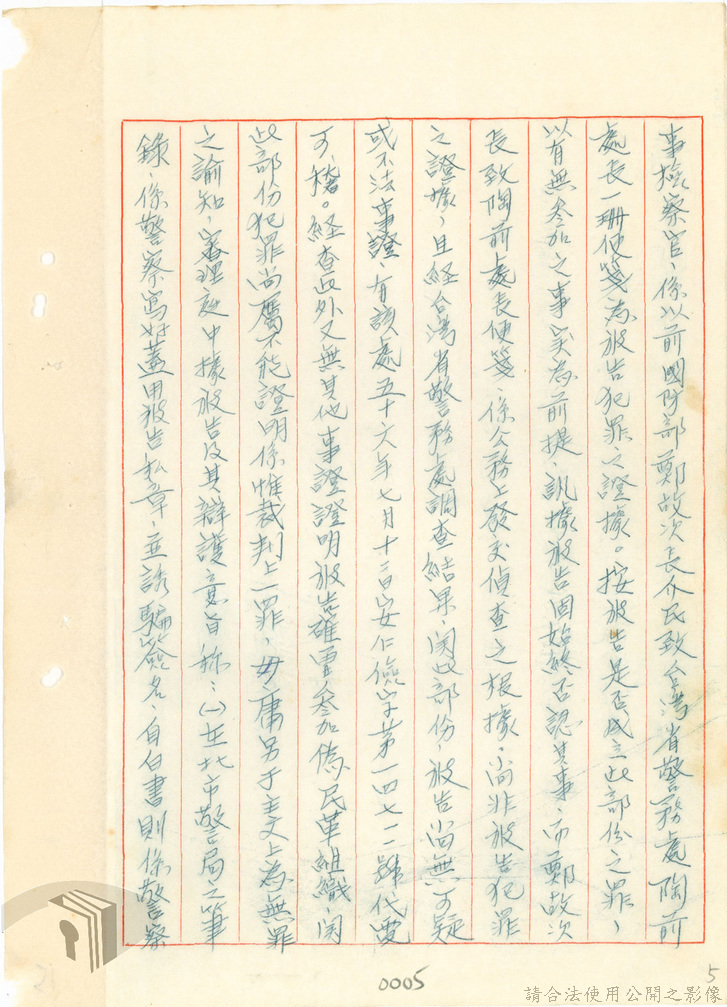 事檢察官、係以前國防部鄭故次長介民致台灣省警務處陶前
處長一珊便箋為被告犯罪之證據。按被告是否成立此部份之罪、
以有無參加之事实為前提、訊據被告固始終否認其事、而鄭故次
長致陶前處長便箋、係公務上發交偵查之根據、尚非被告犯罪
之證據、且経台灣省警務處調查結果、関此部份、被告尚無可疑
或不法事證、有該處五十六年七月十三日安仁儉字第一四七一一號代電
可稽。経查此外又無其他事證證明被告確曾參加偽民革組織、関
此部份犯罪尚屬不能證明係惟裁判上一罪、毋庸另于主文上為無罪
之諭知、審理庭中據被告及其辯護意旨称：㈠在北市警局之筆
錄、係警察寫好蓋用被告私章、並誘騙簽名、自白書則係警察
0005
5
請合法使用公開之影像